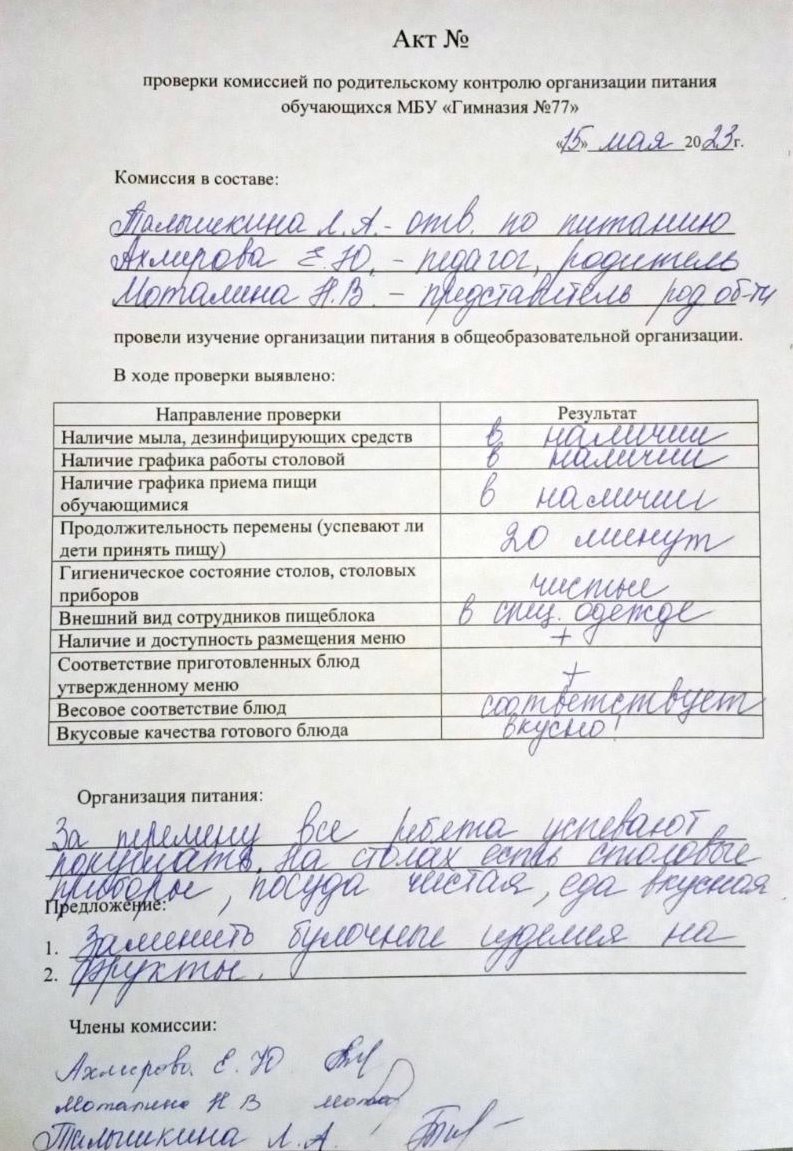 Акт №
проверки комиссией по родительскому контролю организации питания
обучающихся МБУ «Гимназия №77»
«15» мая 2023г.
Комиссия в составе:
Талышкина Л.А. - отв. по питанию
Ахмирова Е.Ю. - педагог, родитель
Моталина Н.В. - представитель род об-ти
провели изучение организации питания в общеобразовательной организации.
В ходе проверки выявлено:
Направление проверки Результат
Наличие мыла, дезинфицирующих средств в наличии
Наличие графика работы столовой в наличии
Наличие графика приема пищи
обучающимися в наличии
Продолжительность перемены (успевают ли
дети принять пищу) 20 минут
Гигиеническое состояние столов, столовых
приборов чистые
Внешний вид сотрудников пищеблока в спец. одежде
Наличие и доступность размещения меню +
Соответствие приготовленных блюд
утвержденному меню +
Весовое соответствие блюд соответствует
Вкусовые качества готового блюда вкусно!
Организация питания:
За перемену все ребята успевают
покушать. На столах есть столовые
приборы, посуда чистая, еда вкусная
Предложение:
1. Заменить булочные изделия на
2. фрукты.
Члены комиссии:
Ахмирова Е. Ю
Моталина Н В
Талышкина Л. А.